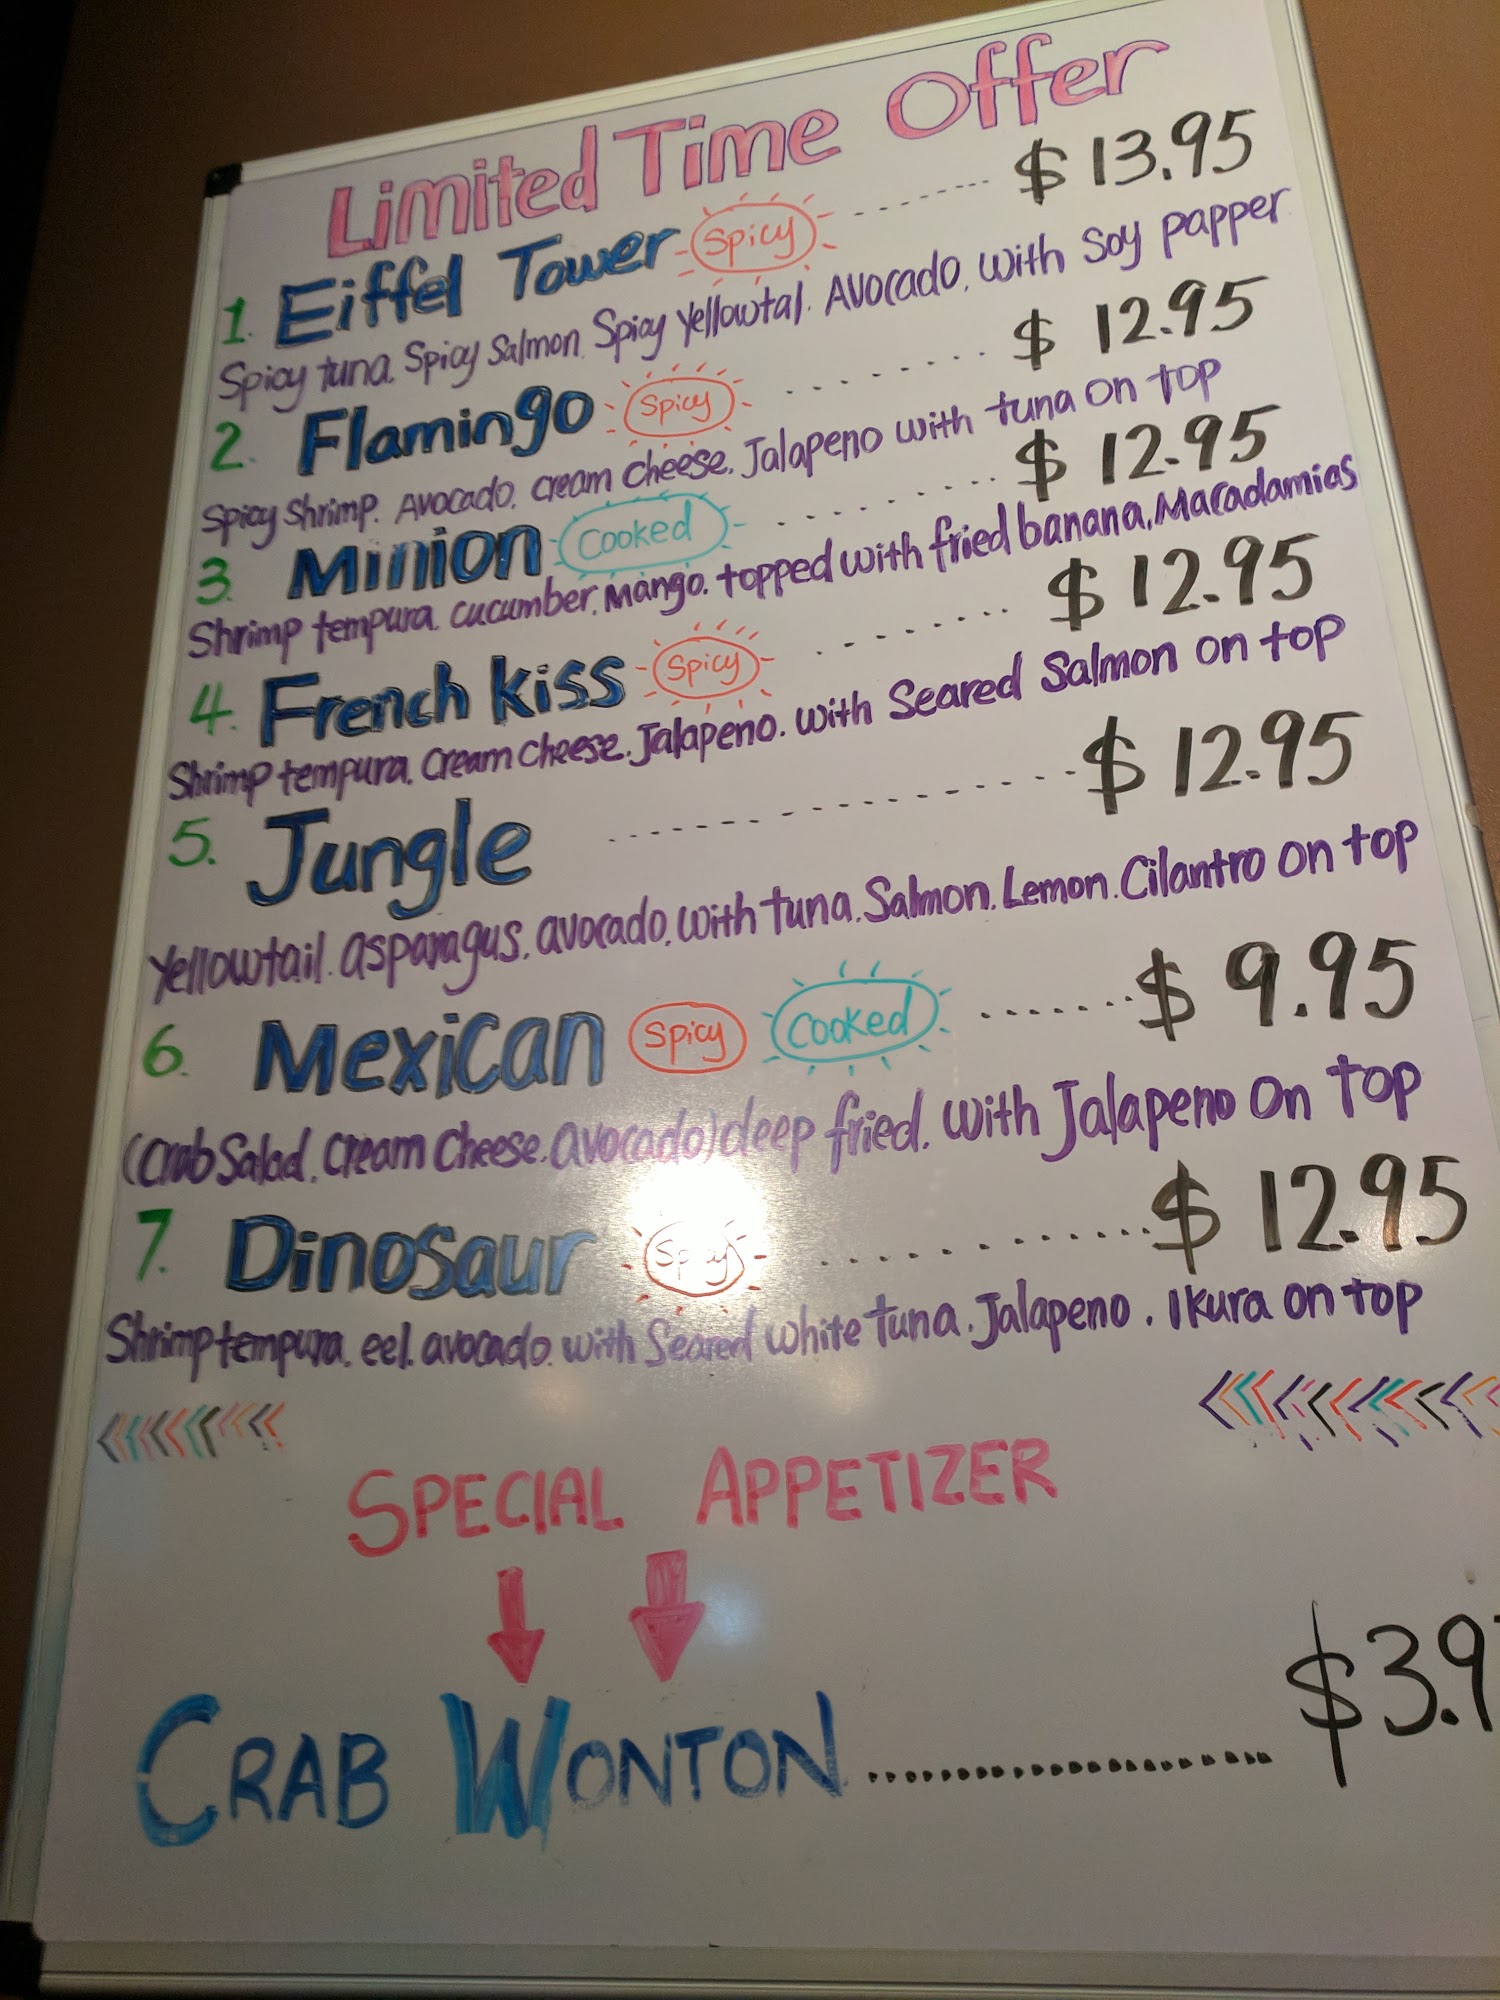 Limited Time Offer
1. Eiffel Tower Spicy ........ $ 13.95
Spicy tuna. Spicy Salmon. Spicy Yellowtal. Avocado. with Soy papper
2. Flamingo Spicy ........ $ 12.95
Spicy Shrimp. Avocado. cream cheese. Jalapeno with tuna on top
3. Minion Cooked ........ $ 12.95
Shrimp tempura. cucumber. Mango. topped with fried banana. Macadamias
4. French kiss Spicy ........ $ 12.95
Shrimp tempura. cream cheese. Jalapeno. with Seared Salmon on top
5. Jungle ........ $ 12.95
Yellowtail. asparagus. avocado. with tuna. Salmon. Lemon. Cilantro on top
6. Mexican Spicy Cooked ........ $ 9.95
(Crab Salad. cream cheese. avocado) deep fried. with Jalapeno on top
7. Dinosaur Spicy ........ $ 12.95
Shrimp tempura. eel. avocado. with Seared white tuna. Jalapeno. Ikura on top
SPECIAL APPETIZER
CRAB WONTON ........ $3.9